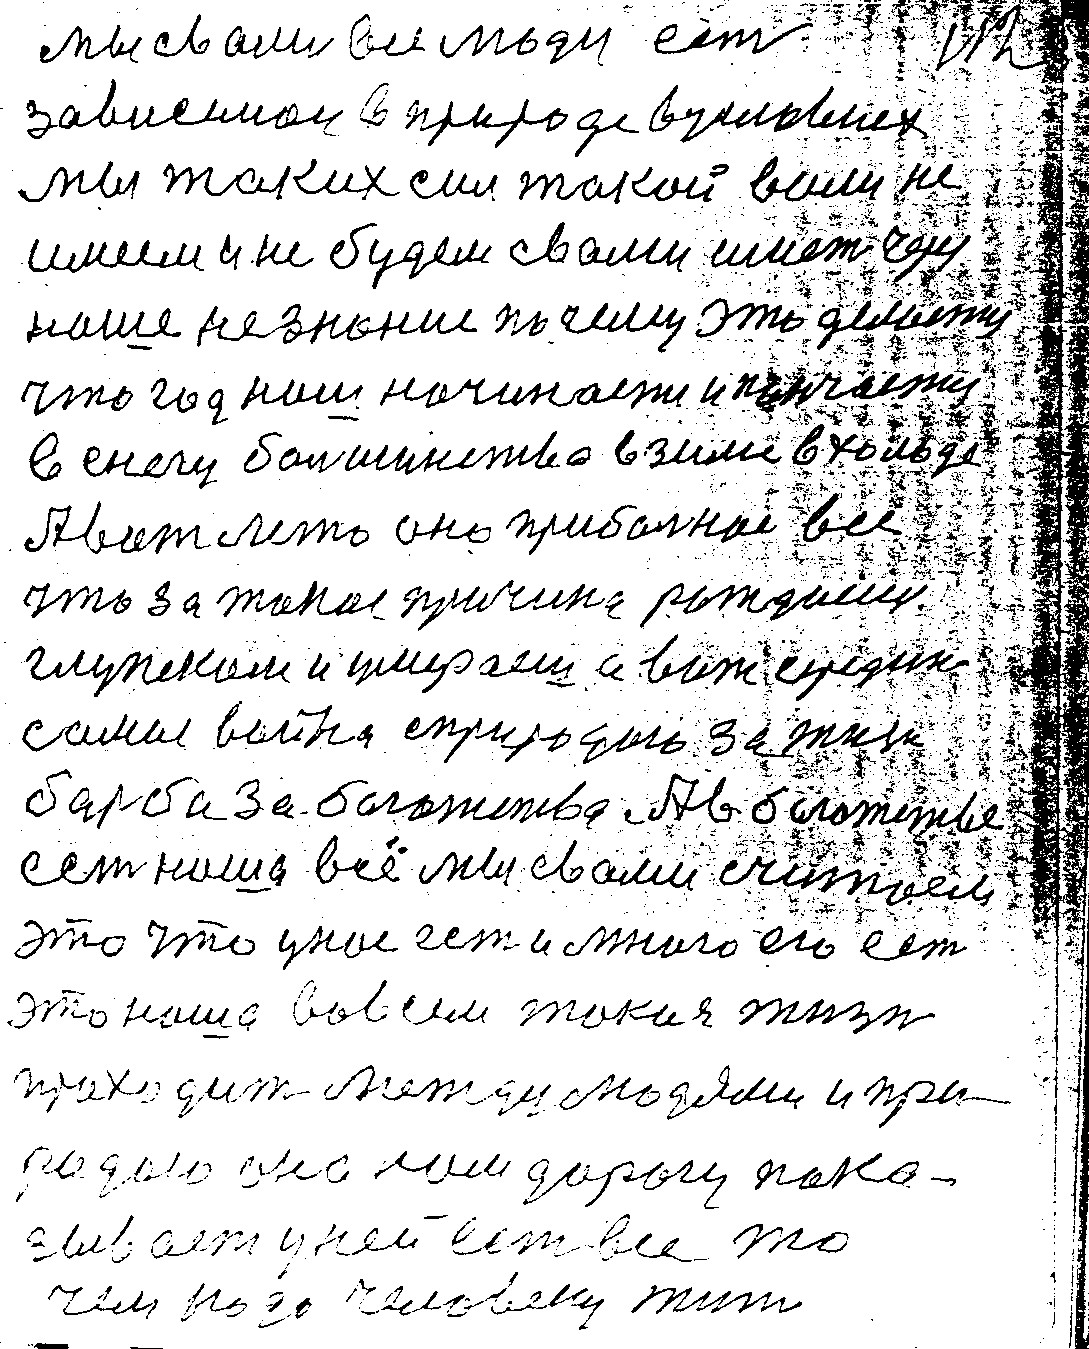 мы свами все люди ест 112
зависимои в природе вуиловиех
мы таких сил такой воли не
имеем и не будем свами имет чему
наше незнание почему это делаетц
что год наш начинаетц и кончаетц
в снегу болшинство в зиме в холоде
А вот лето оно приболное все
что за такое причина рождаемц
глупеком и умираем а вот середин
самые война сприродою за жизн
барба за богатства А в богатстве
ест наша всё мы свами считаем
это что унас гет и много его ест
это наша вовсем такая жизн
праходит между людями и при
радою она нам дорогу пока-
зывает уней ест все то
чем надо человеку жит